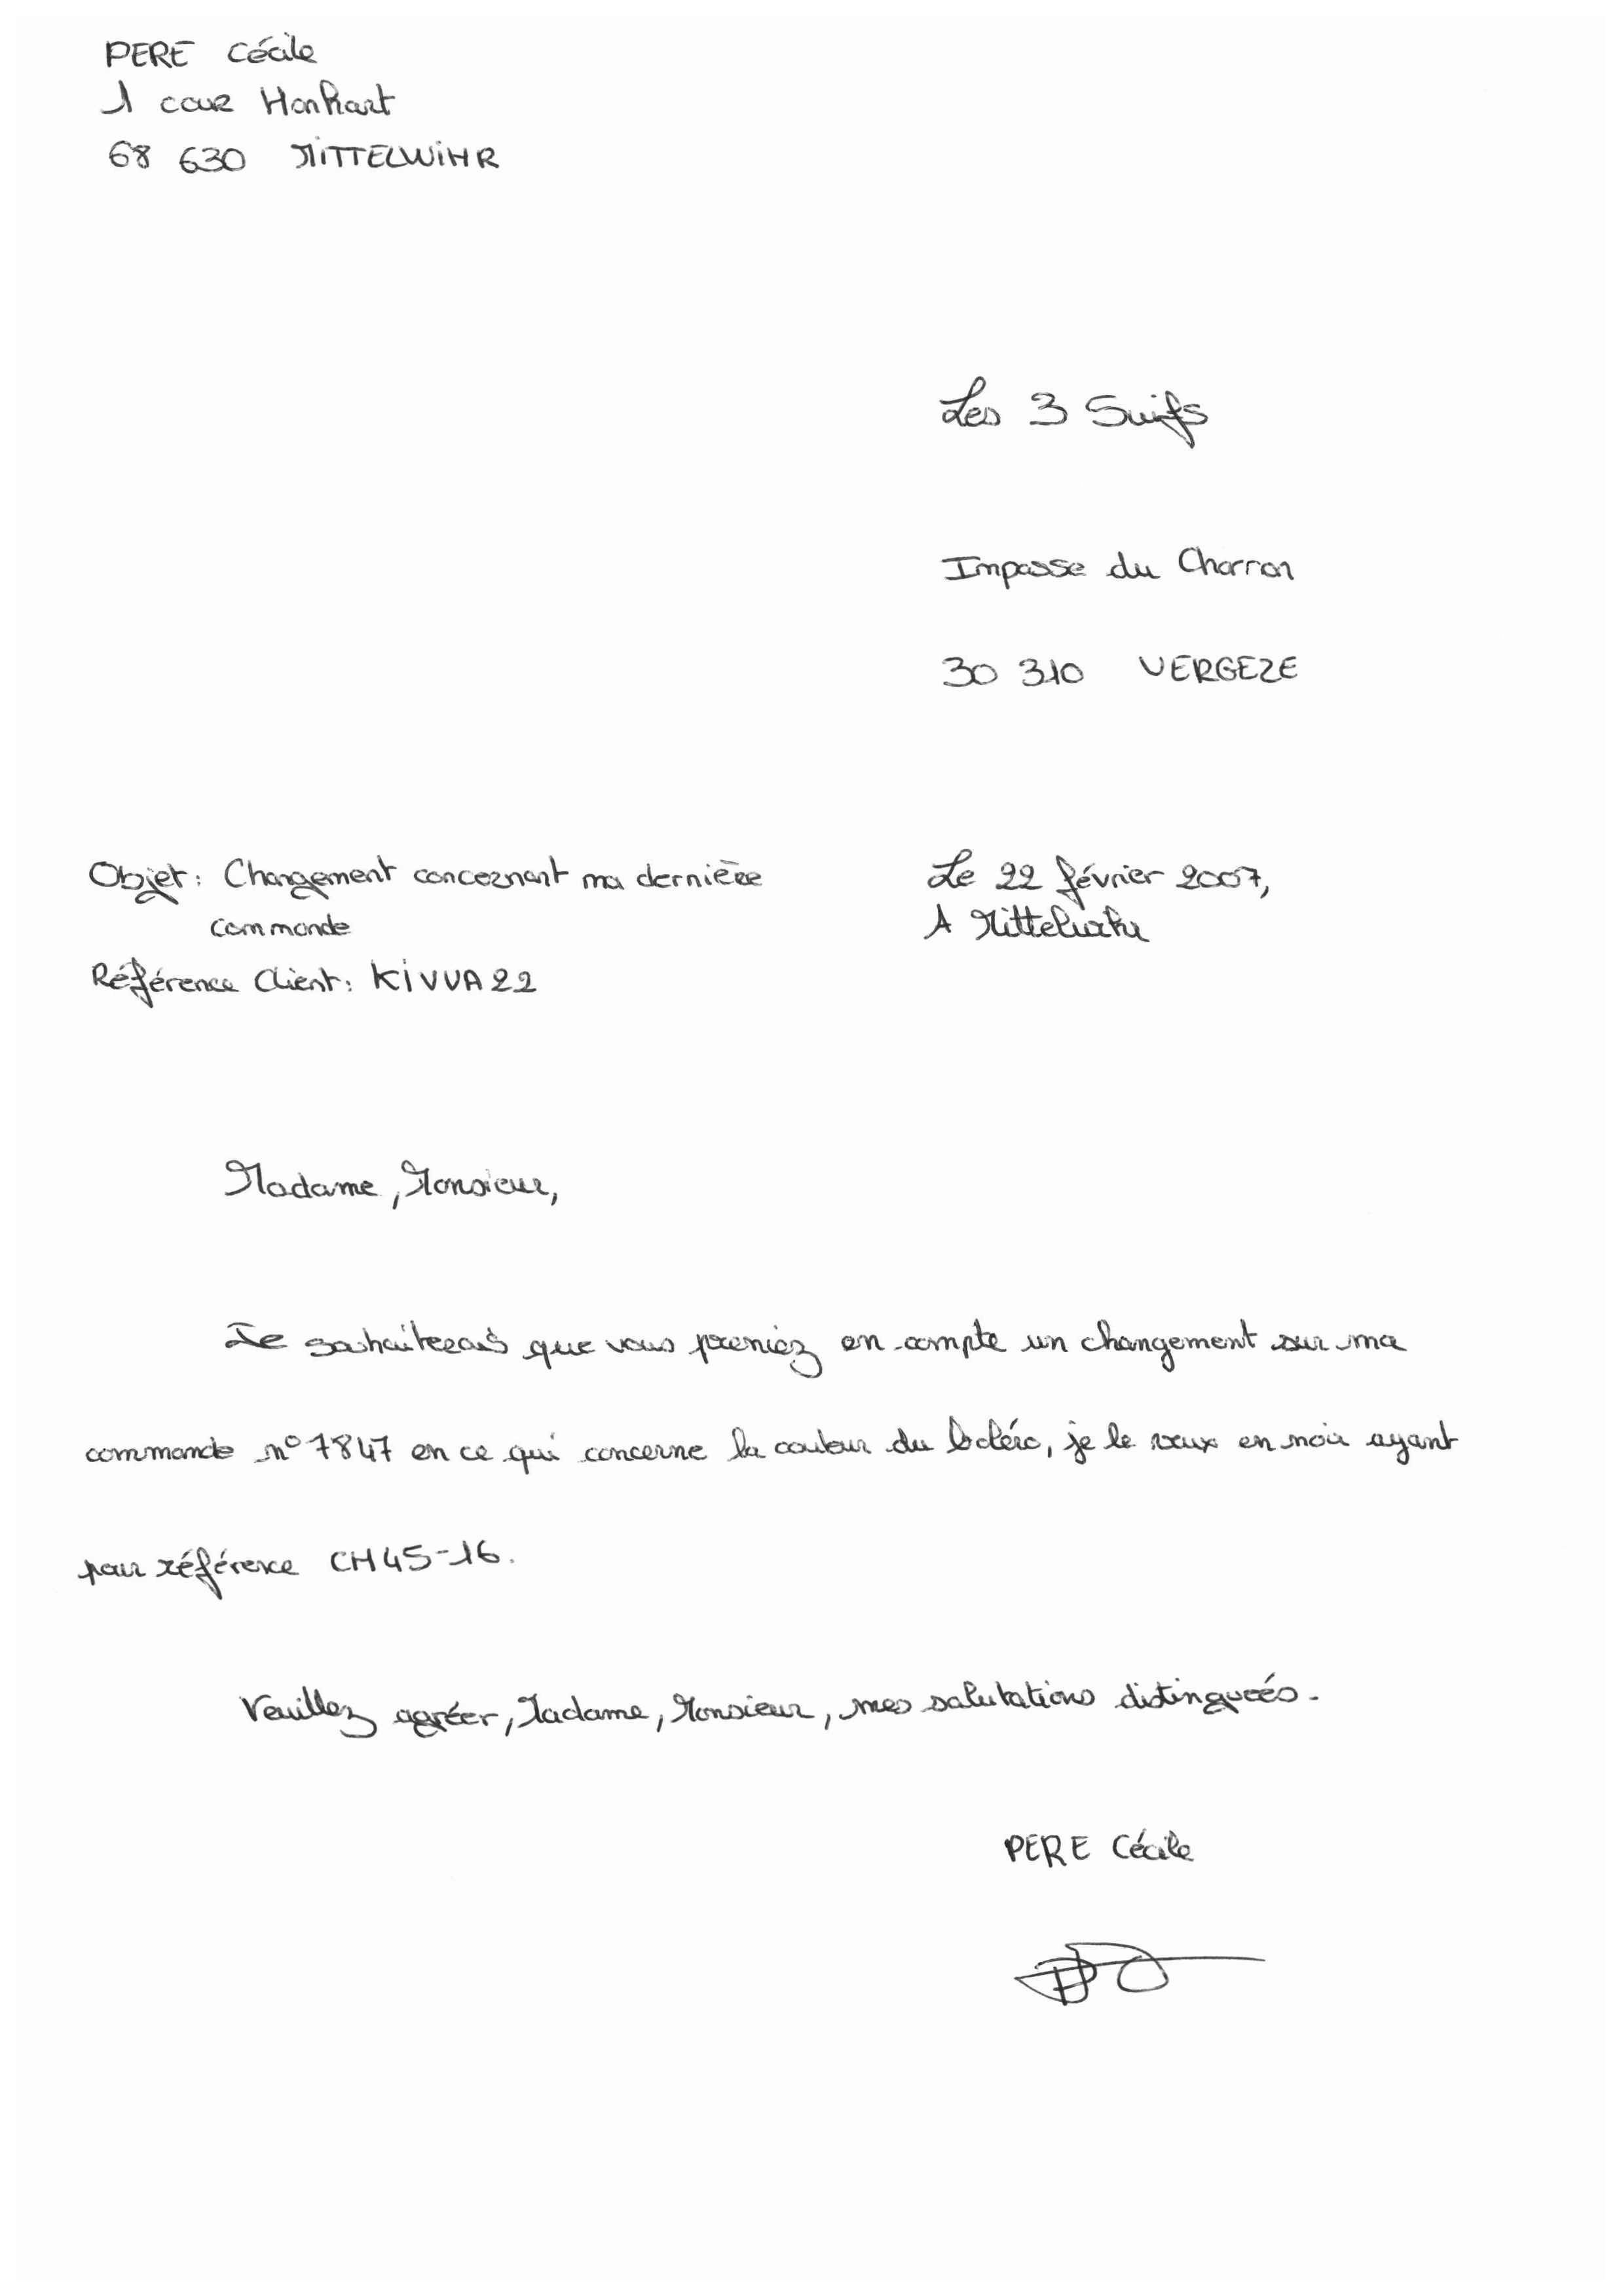 PERE Cécile
1 cour Honhart
68 630 MITTELWIHR
Les 3 Suifs
Impasse du Charron
30 310 VERGEZE
Objet: Changement concernant ma dernière
commande
Référence Client: KIVVA22
Le 22 février 2007,
A Mittelwihr
Madame, Monsieur,
Je souhaiterais que vous preniez en compte un changement sur ma
commande n°7847 en ce qui concerne la couleur du boléro, je le veux en noir ayant
pour référence CH45-16.
Veuillez agréer, Madame, Monsieur, mes salutations distinguées.
PERE Cécile